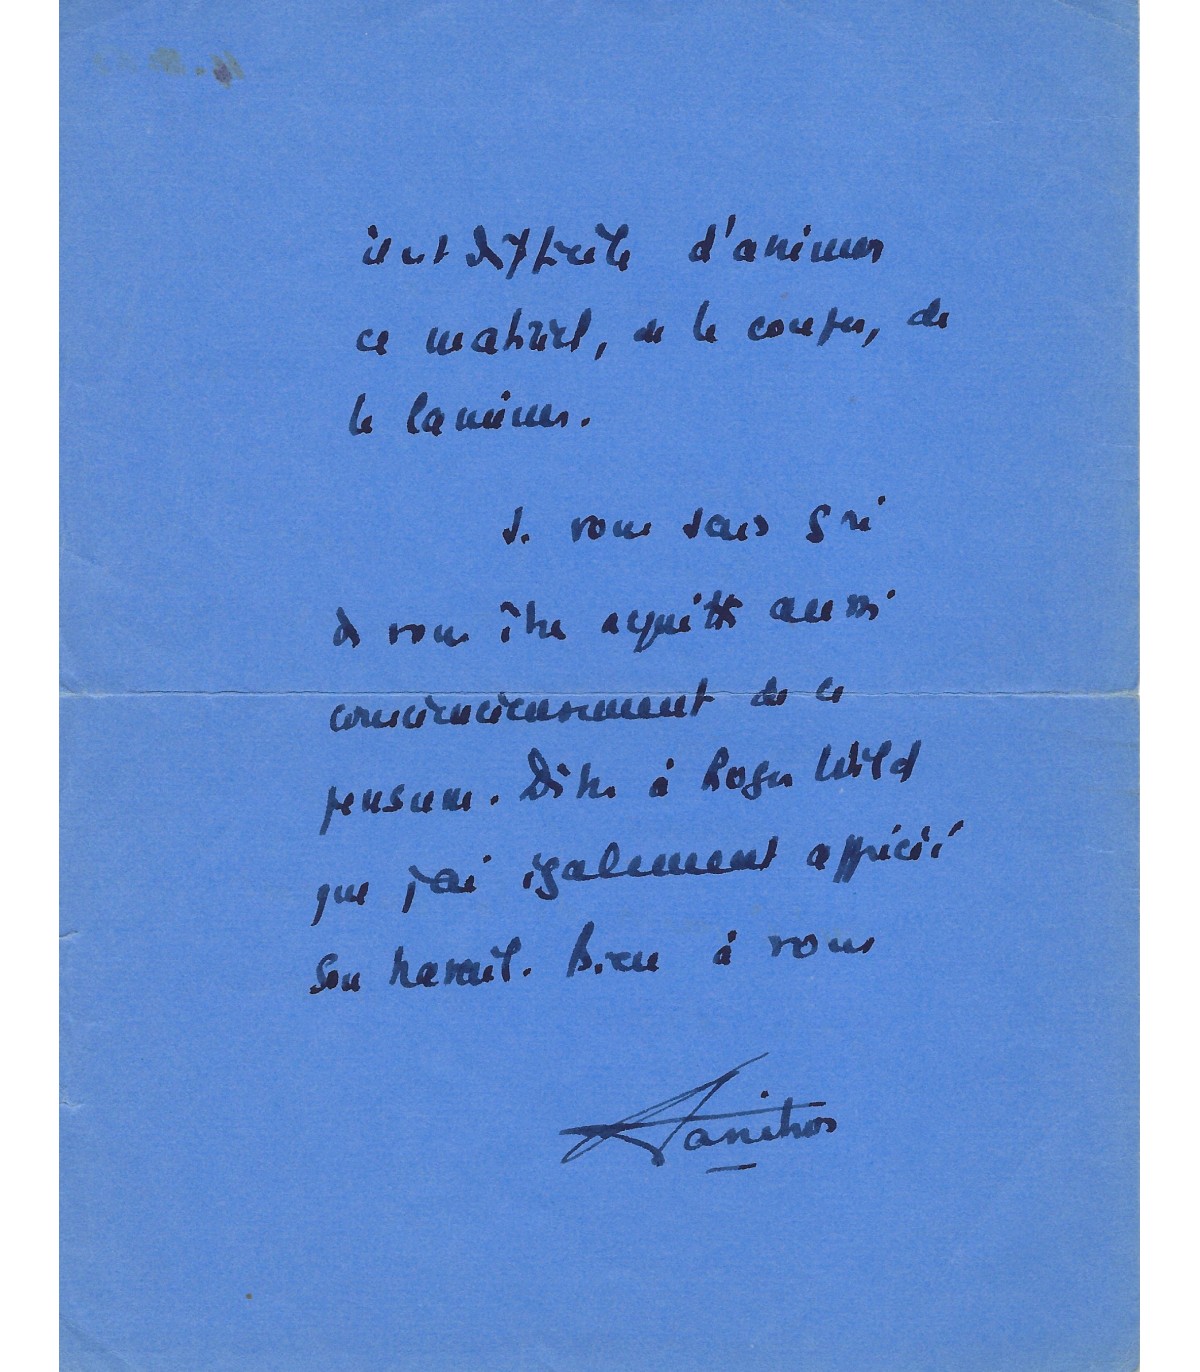 il est difficile d'animer
ce matériel, de le couper, de
le laminer.
Je vous sais gré
de vous être acquitté aussi
consciencieusement de ce
pensum. Dites à Roger Wild
que j'ai également apprécié
son travail. Bien à vous